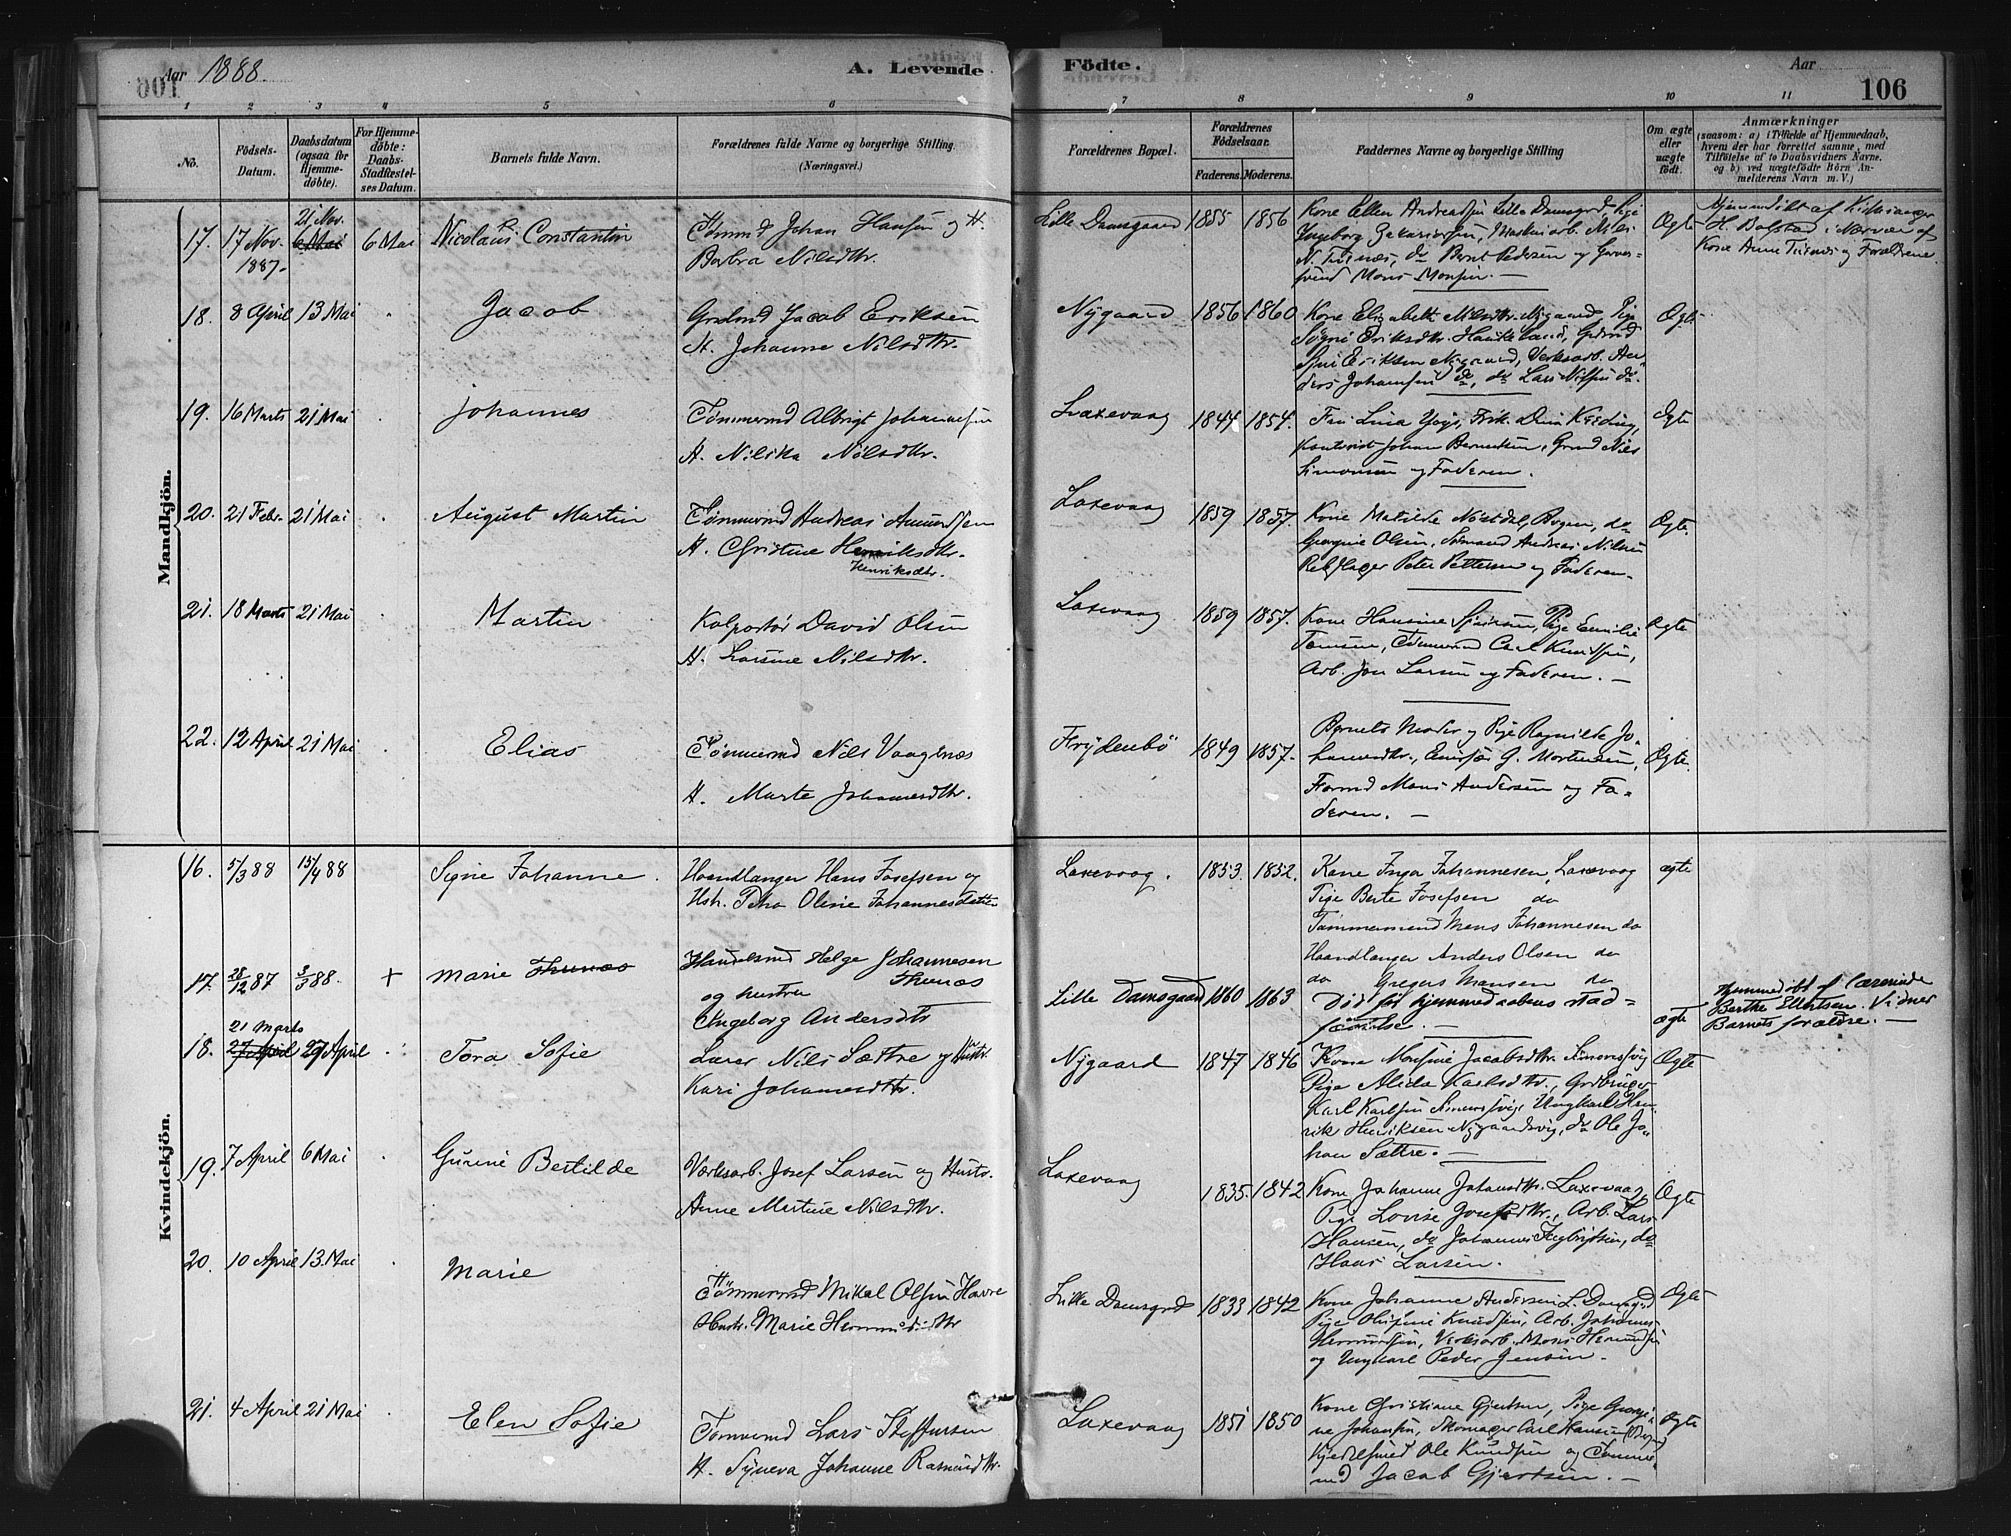 Aar 1888.
A. Levende
Födte.
Aar
106
1 2 3 4 5 6 7 8 9 10 11
No.
Födsels-Datum.
Daabsdatum (ogsaa for Hjemmedöbte).
For Hjemmedöbte: Daabs-Stadfæstelses Datum.
Barnets fulde Navn.
Forældrenes fulde Navne og borgerlige Stilling (Næringsvei.)
Forældrenes Bopæl.
Forældrenes Födselsaar.
Faderens. Moderens.
Faddernes Navne og borgerlige Stilling
Om ægte eller uægte födt.
Anmærkninger
(saasom: a) i Tilfælde af Hjemmedaab, hvem der har forrettet samme, med Tilföielse af to Daabsvidners Navne. og b) ved uægtefödte Börn Anmelderens Navn m. V.)
Mandkjön.
17. 17 Nov. 1887. 21 Nov. 6 Mai 6 Mai Nicolaus Constantin
Tömmd Johan Hansen og H.
Barbra Nilsdtr.
Lille Damsgaard 1855 1856
Kone Ellen Andreassen Lille Damsgrd, Pige
Ingeborg Zakariassen,
Bernt Pedersen og
Mons Monsen. —
Ægte
Hjemmedöbt af
H. Bolstad i Nærvær af
Kone Anne og Forældrene.
18. 8 April 13 Mai Jacob
Grdmd Jacob Eriksen
H. Johanne Nilsdtr.
Nygaard 1856 1860
Kone Elisabeth Nilsdtr. Nygaard, Pige
Eriksen Nygaard, Verksarb. An-
ders Johansen do, do Lars Nilsen do.
Ægte
19. 16 Marts 21 Mai Johannes
Tömmermd Albrigt Johannesen
H. Nilsine Nilsdtr.
Laxevaag 1844 1854.
Johan Berntsen, Nils
Simonsen og Faderen.
Ægte
20. 21 Febr. 21 Mai August Martin
Tömmermd Andreas Amundsen
H. Christine Henriksdtr.
Henriksdtr.
Laxevaag 1859 1857.
Kone Matilde Nöstdal, Bergen, do
Georgine Olsen, Sömand Andreas Nilsen
Rebslager Peter Pettersen og Faderen.
Ægte.
21. 18 Marts 21 Mai Martin
Kolportör David Olsen
H. Larsine Nilsdtr.
Laxevaag 1859 1857.
Kone Hansine Sjursen, Pige Emilie
Tomsen, Tömmermd Carl Knudsen,
Arb. Jon Larsen og Faderen. —
Ægte
22. 12 April 21 Mai Elias
Tömmermd Nils Vaagenæs
H. Marte Johannesdtr.
Frydenbö 1849 1857.
Barnets Moder og Pige Ragnilde Jo-
hannesdtr., G. Mortensen,
Formd Mons Andersen og Fa-
deren. —
Ægte.
Kvindekjön.
16. 5/3 88 15/4 88 Signe Johanne.
Haandlanger Hans Josefsen og
Hstr. Petra Oline Johannesdatter
Laxevaag. 1853. 1852.
Kone Inga Johannesen, Laxevaag
Pige Berte Josefsen do
Tömmermand Mons Johannesen do
Haandlanger Anders Olsen do
do Gregers Mansen do
ægte
17. 28/12 87 3/3 88. + Marie Thunæs
Handelsmd Helge Johannesen
Thunæs
og hustru
Ingeborg Andersdtr
Lille Damsgaard 1860 1863
Död för hjemmedaabens stad-
fæstelse. —
ægte
Hjemmedöbt af lærerinde
Berthe Ellertsen. Vidner
Barnets forældre. —
18. 21 Marts 27 April 29 April Tora Sofie
Lærer Nils Sættre og Hustr.
Kari Johannesdtr.
Nygaard 1847 1846
Kone Monsine Jacobsdtr. Simonsvig
Pige Alida Karlsdtr., Grdbruger
Karl Karlsen Simonsvig, Ungkarl Hen-
rik Henriksen Nygaardsvig, do Ole Jo-
han Sættre. —
Ægte
19. 7 April 6 Mai Gurine Bertilde
Værksarb. Josef Larsen og Hustr.
Anne Martine Nilsdtr.
Laxevaag 1835. 1842
Kone Johanne Johansdtr. Laxevaag,
Pige Lovise Josefsdtr., Arb. Lars
Hansen, do Johannes Ingbrigtsen, do
Hans Larsen.
Ægte
20. 10 April 13. Mai Marie
Tömmermd Mikal Olsen Havre
Hustr. Marie Hermundsdtr
Lille Damsgrd 1833 1842
Kone Johanne Andersen L. Damsgd
Pige Knudsen, Arb. Johannes
Hermundsen, Verksarb. Mons Hermundsen
og Ungkarl Peder Jensen.
Ægte
21. 4 April 21 Mai Elen Sofie
Tömmermd Lars Steffensen
H. Syneva Johanne Rasmusdtr.
Laxevaag 1851 1850
Kone Christiane Gjertsen, Pige Georgi-
ne Johansen, Skomager Carl Hansen Bergen
Kjedelsmed Ole Knudsen og Tömmer-
md Jacob Gjertsen. —
Ægte